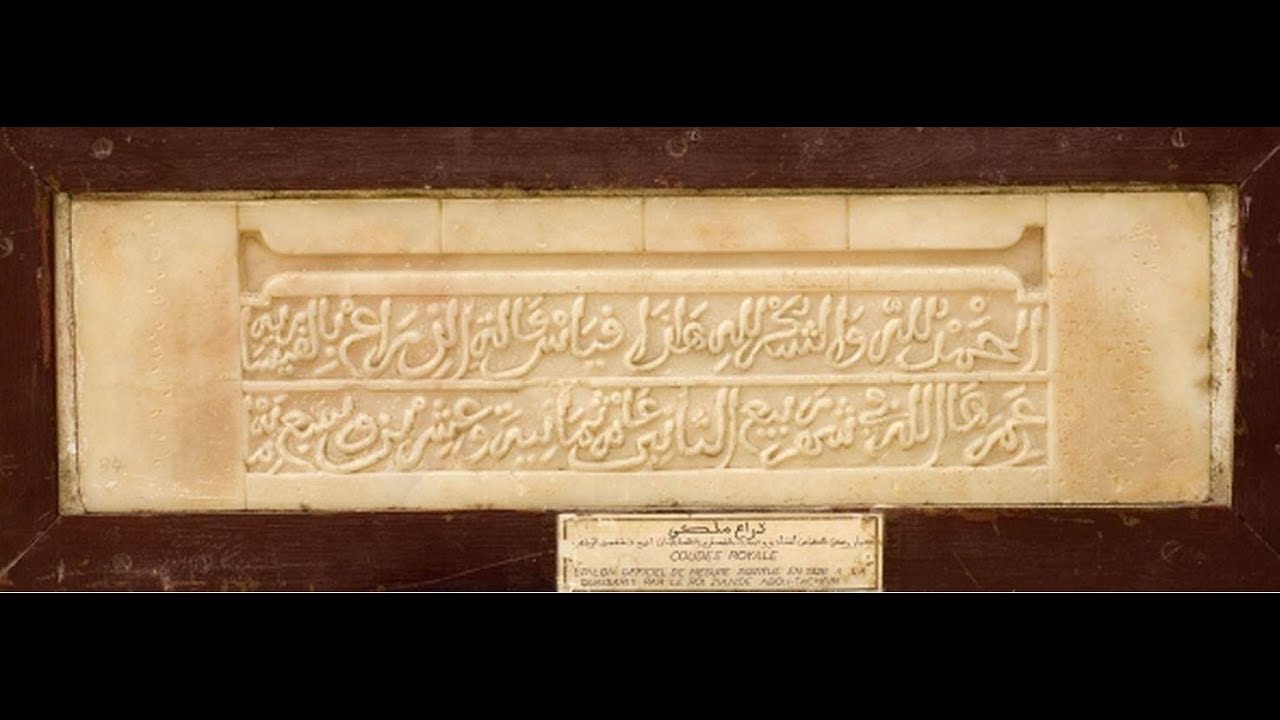 الحمد لله والشكر لله هاذا قياس قالة الذراع بالقيسارية
عمرها الله في شهر ربيع الثاني عام ثمانية وعشرين وسبع مئة
ذراع ملكي
COUDES ROYALE
OFFICIEL DE MESURE EN A LA
PAR LE ROI